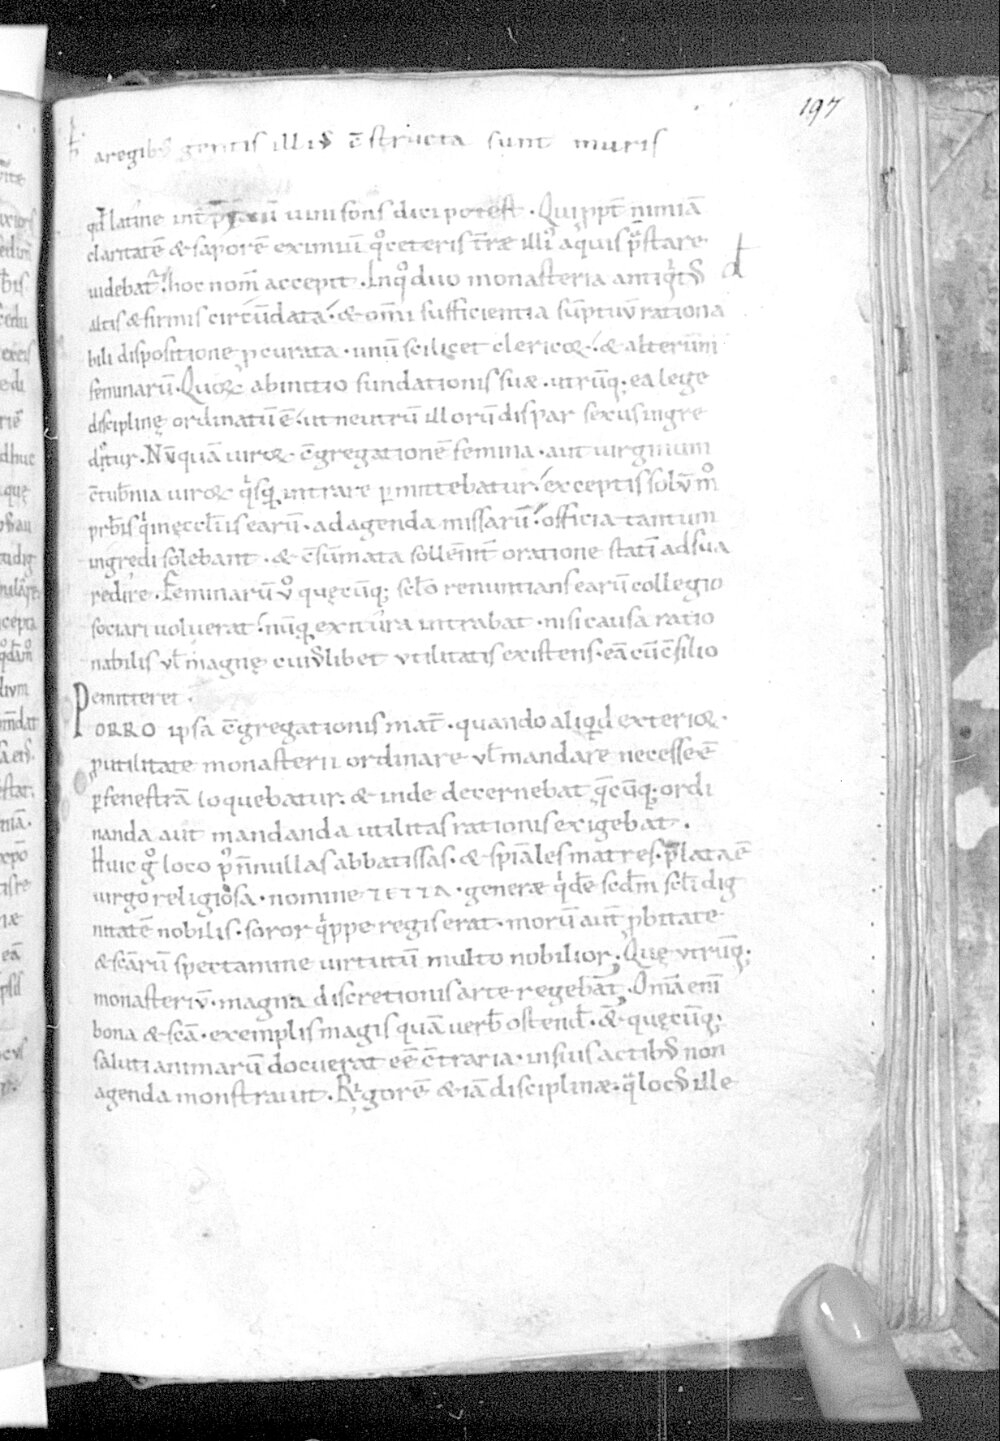 197
aregib⁹ gentis illi⁹ c̄structa sunt muris
qđ latine int̄ vini fons dici potest . Quippe nimiā
claritatē & saporē eximiū q̊ ceteris t̄ræ illi⁹ aquis p̄stare
uidebat᷑ hoc nom̄ accepit . In q̊ duo monasteria antiq̇t⁹
altis & firmis circūdata . & om̄i sufficientia sūptuū rationa
bili dispositione pcurata . unū scilicet clericoꝝ . & alterum
feminarū . Quoꝝ ab initio fundationis suæ . utrūq; ea lege
disciplinę ordinatū ē . ut neutrū illorū dispar sexus ingre
d̊itur . Nūquā uiroꝝ c̄gregationē femina . aut uirginum
c̄tub̄nia uiroꝝ q̇sq̄ intrare pmittebatur . exceptis solū m̊
prb̄is q̇ in ęccl̄iis earū . ad agenda missarū officia tantum
ingredi solebant . & c̄sūmata sollēnit̄ oratione statī ad sua
redire . Feminarū v̊ quęcūq; sc̄lo renuntians earū collegio
sociari uoluerat . nūq̄ exitura intrabat . nisi causa ratio
nabilis ul̄ magnę cui⁹libet utilitatis existens . eā cū c̄silio
emitteret .
PORRO ipsa c̄gregationis mat̄ . quando aliqid exterioꝝ .
putilitate monasterii ordinare ul̄ mandare necesse ēē
p fenestrā loquebatur . & inde decernebat q̄cūq; ordi
nanda aut mandanda utilitas rationis exigebat .
Huic g̊ loco p⁹ ñnullas abbatissas . & sp̄iales matres . p̄lata ē
uirgo religiosa . nomine TETTA . generæ q̇dē scđm sc̄li dig
nitatē nobilis . soror q̇ppe regis erat . morū aut̄ pbitate
& sc̄arū spectamine uirtutū multo nobilior . Quę utrūq;
monasteriū . magna discretionis arte regebat̄ . Om̄a eni
bona & sc̄a . exemplis magis quā uerb̄ ostend̄ . & quęcūq;
saluti animarū docuerat eē c̄traria . in suis actib⁹ non
agenda monstrauit . Rigorē & iā disciplinæ . q̄ loc⁹ ille